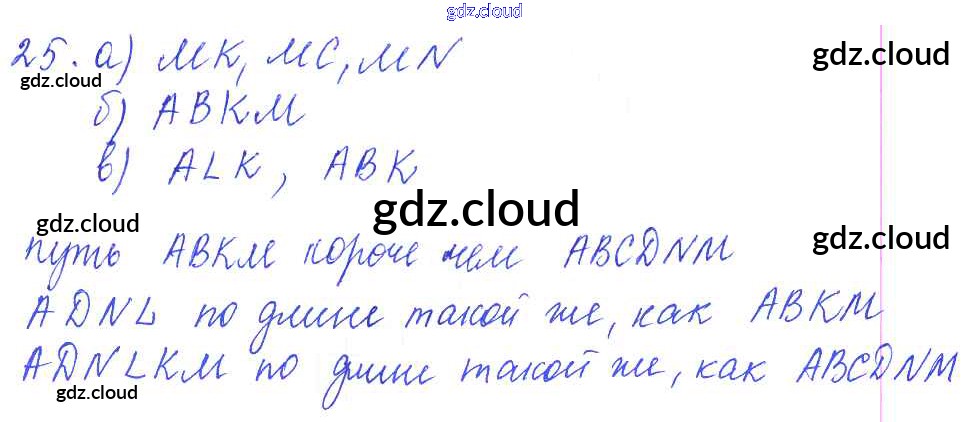 gdz.cloud
25. а) MK, MC, MN
gdz.cloud
gdz.cloud
б) ABKM
в) ALK, ABK
gdz.cloud
gdz.cloud
gdz.cloud
путь ABKM короче чем ABCDNM
ADNL по длине такой же, как ABKM
ADNLKM по длине такой же, как ABCDNM
gdz.cloud
gdz.cloud